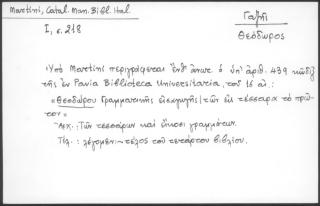 Martini, Catal. Man. Bibl. Ital
I, σ. 218
Γαζῆς
Θεόδωρος
Ὑπὸ Martini περιγράφεται ἐνθ' ἀνωτ. ὁ ὑπ' ἀριθ. 439 κῶδιξ
τῆς ἐν Pavia Biblioteca Universitaria, τοῦ 16 αἰ.:
«Θεοδώρου Γραμματικῆς εἰσαγωγῆς τῶν εἰς τέσσαρα τὸ πρῶ-
τον»
Ἀρχ.: Τῶν τεσσάρων καὶ εἴκοσι γραμμάτων.
Τέλ.: λέγομεν: – τέλος τοῦ τετάρτου βιβλίου.